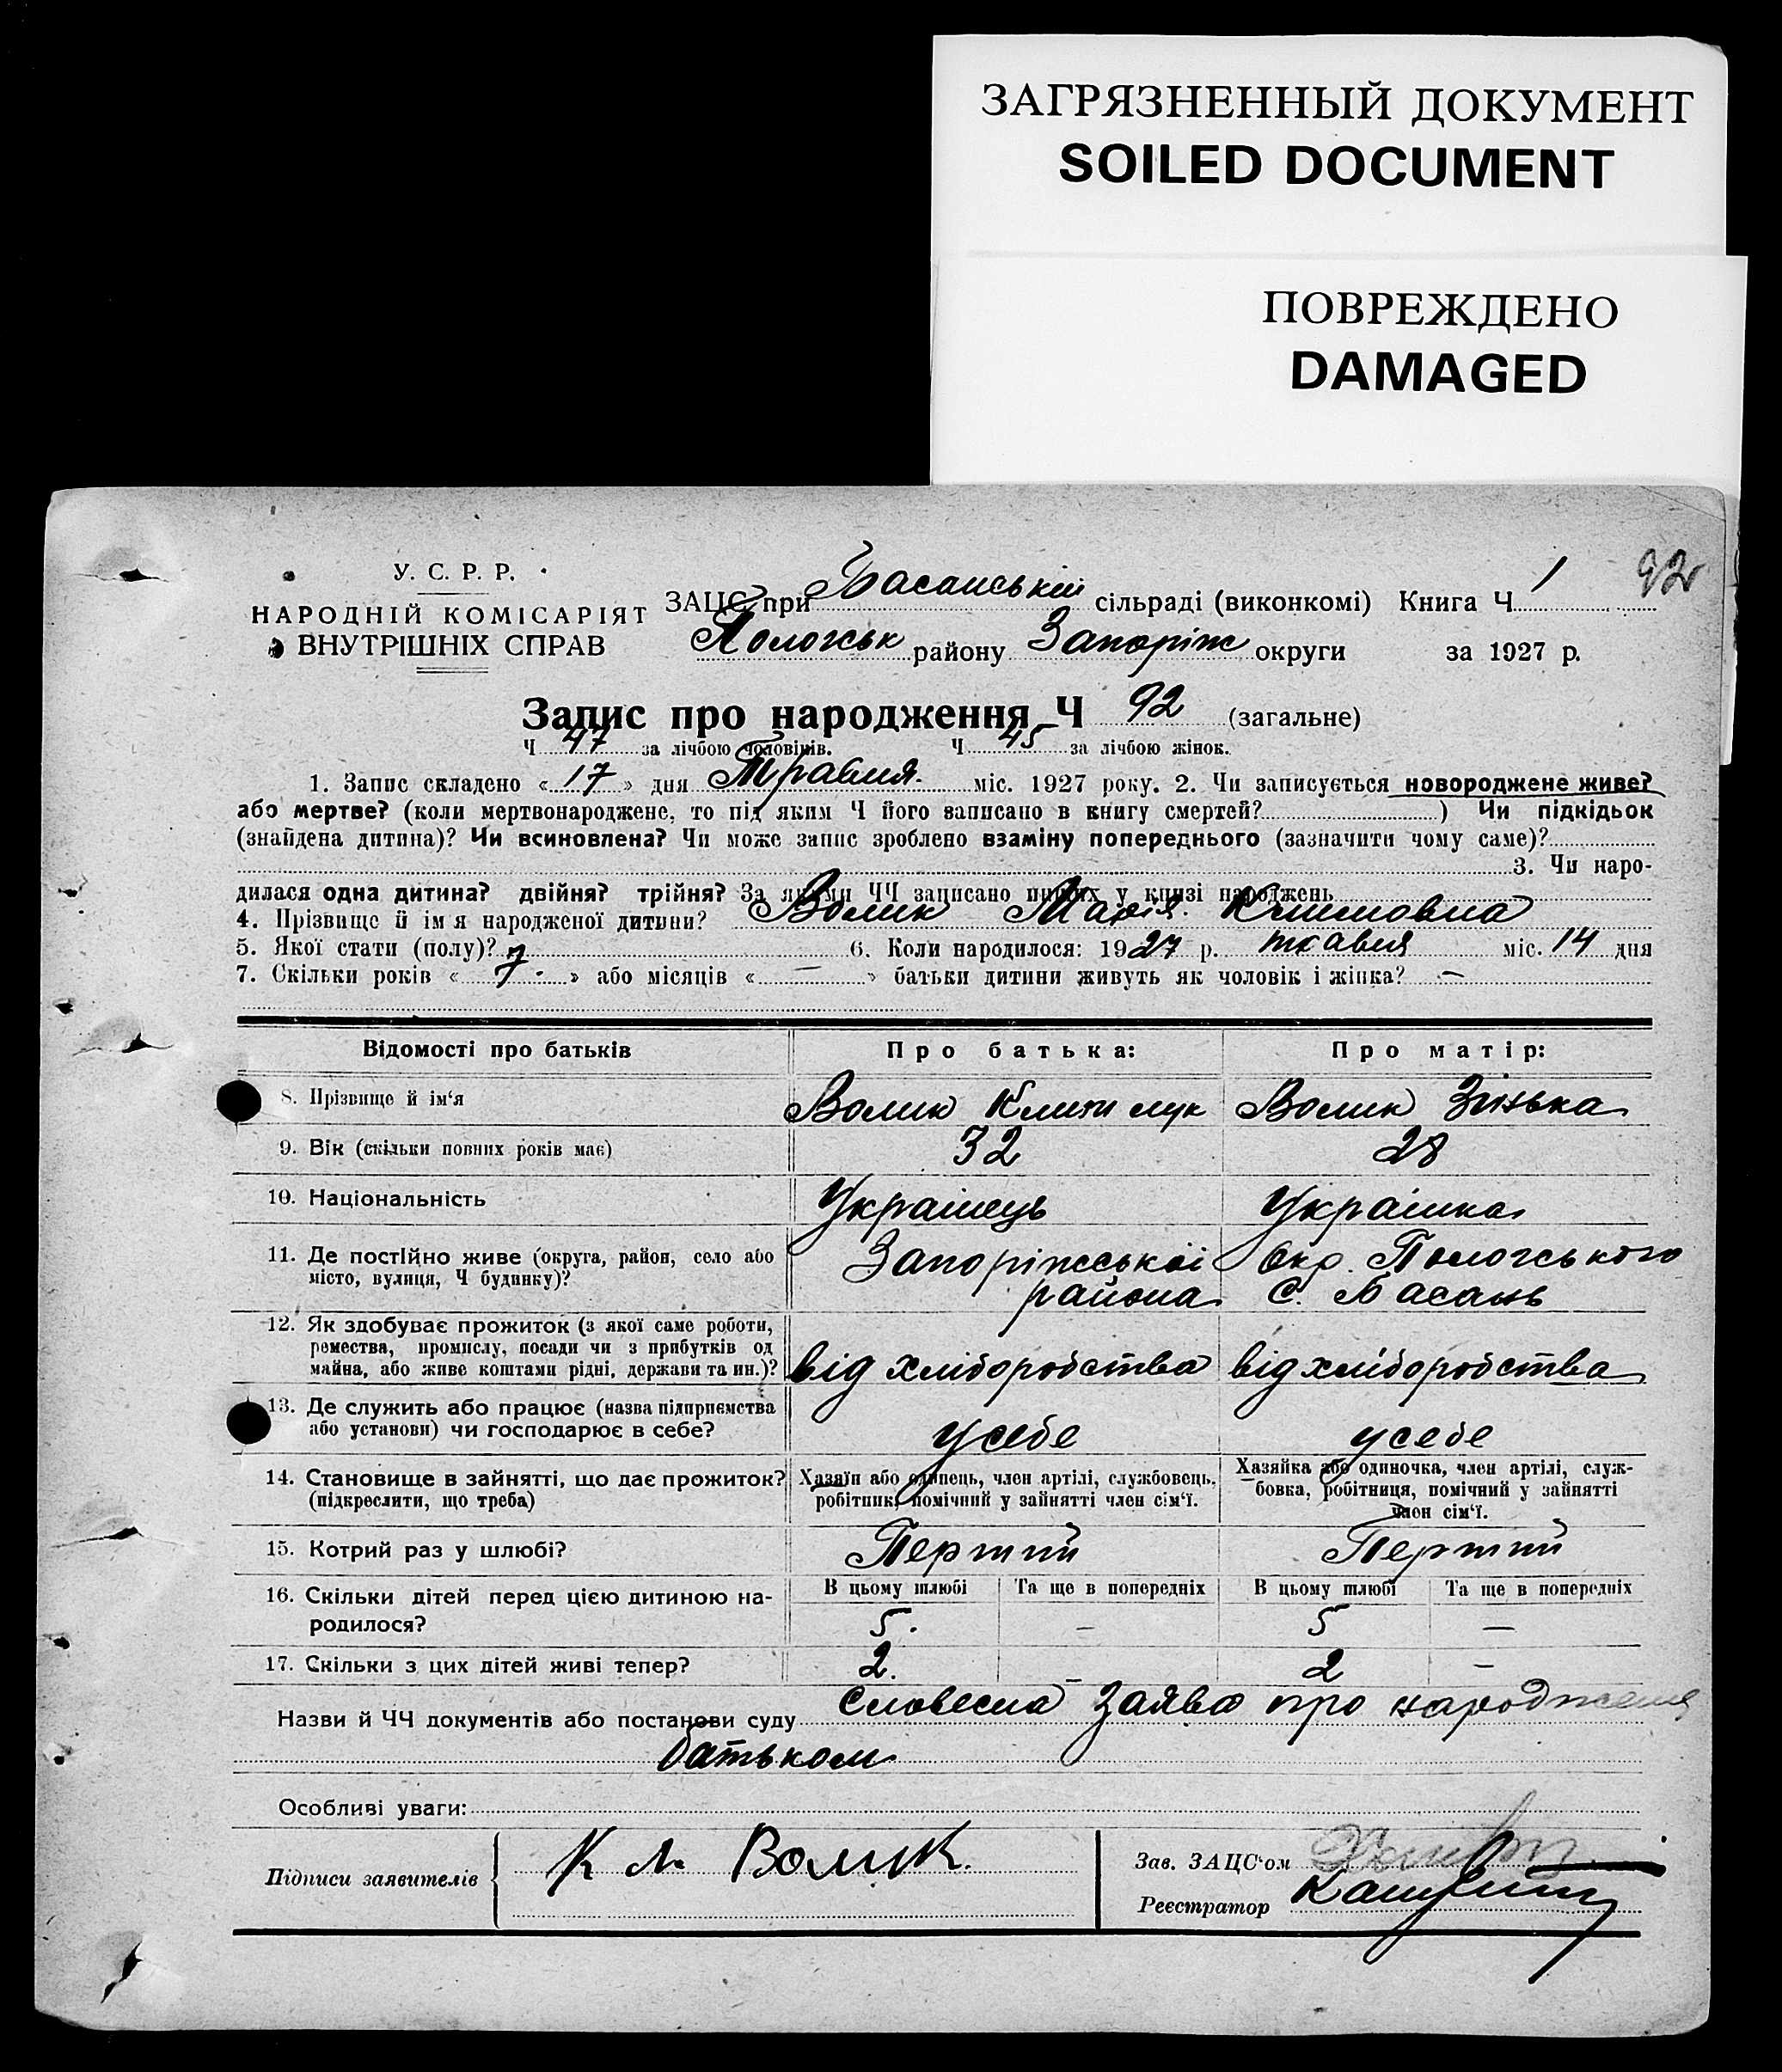 ЗАГРЯЗНЕННЫЙ ДОКУМЕНТ
SOILED DOCUMENT
ПОВРЕЖДЕНО
DAMAGED
92
У. С. Р. Р.
НАРОДНІЙ КОМІСАРІЯТ
ВНУТРІШНІХ СПРАВ
ЗАЦС при Басанській сільраді (виконкомі) Книга Ч 1
Пологськ району Запоріж округи за 1927 р.
Запис про народження Ч 92 (загальне)
Ч 47 за лічбою чоловіків. Ч 45 за лічбою жінок.
1. Запис складено « 17 » дня Травня міс. 1927 року. 2. Чи записується новороджене живе?
або мертве? (коли мертвонароджене, то під яким Ч його записано в книгу смертей? ) Чи підкідьок
(знайдена дитина)? Чи всиновлена? Чи може запис зроблено взаміну попереднього (зазначити чому саме)?
3. Чи наро-
дилася одна дитина? двійня? трійня? За якими ЧЧ записано инших у книзі народжень
4. Прізвище й ім'я народженої дитини? Волик Марія Климовна
5. Якої стати (полу)? 6. Коли народилося: 1927 р. травня міс. 14 дня
7. Скільки років « 7 » або місяців « — » батьки дитини живуть як чоловік і жінка? —
Відомості про батьків Про батька: Про матір:
8. Прізвище й ім'я Волик Волик Зінька
9. Вік (скільки повних років має) 32 28
10. Національність Українець Українка
11. Де постійно живе (округа, район, село або Запоріжської Окр. Пологського
місто, вулиця, Ч будинку)? района с. Басань
12. Як здобуває прожиток (з якої саме роботи,
ремества, промислу, посади чи з прибутків од
майна, або живе коштами рідні, держави та ин.)? від хліборобства від хліборобства
13. Де служить або працює (назва підприємства
або установи) чи господарює в себе? у себе у себе
14. Становище в зайнятті, що дає прожиток? Хазяїн або одинець, член артілі, службовець, Хазяйка або одиночка, член артілі, служ-
(підкреслити, що треба) робітник, помічний у зайнятті член сім'ї. бовка, робітниця, помічний у зайнятті
член сім'ї.
15. Котрий раз у шлюбі? Перший Перший
16. Скільки дітей перед цією дитиною на- В цьому шлюбі Та ще в попередніх В цьому шлюбі Та ще в попередніх
родилося? 5. — 5 —
17. Скільки з цих дітей живі тепер? 2. — 2 —
Назви й ЧЧ документів або постанови суду Словесна заява про народження
батьком
Особливі уваги:
Підписи заявителів К Волик. Зав. ЗАЦС'ом
Реєстратор